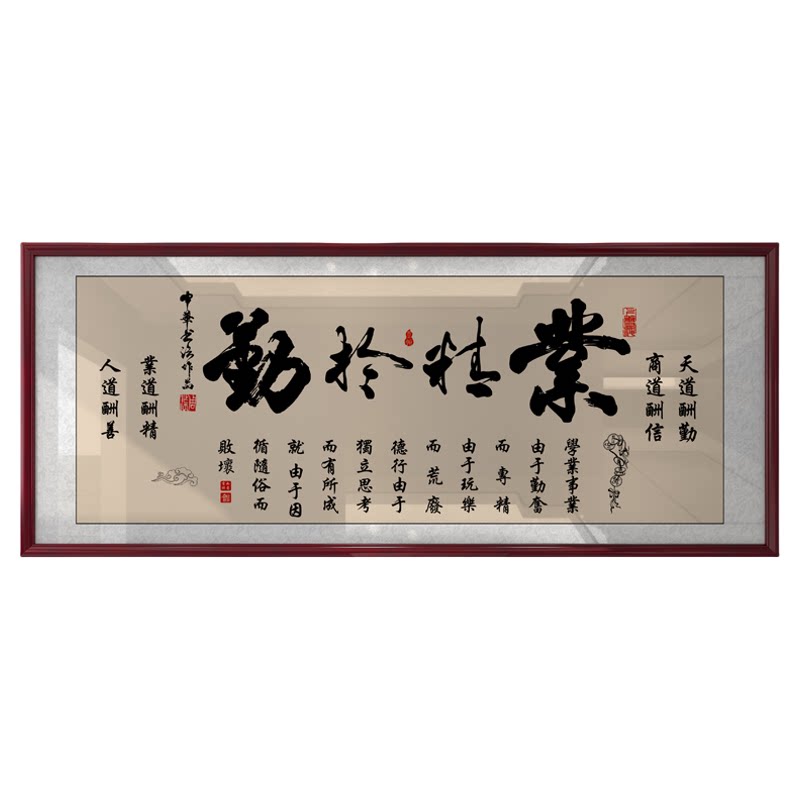 天道酬勤
商道酬信
業精於勤
學業事業
由于勤奮
而專精
由于玩樂
而荒廢
德行由于
獨立思考
而有所成
就由于因
循隨俗而
敗壞
中華書法作品
業道酬精
人道酬善